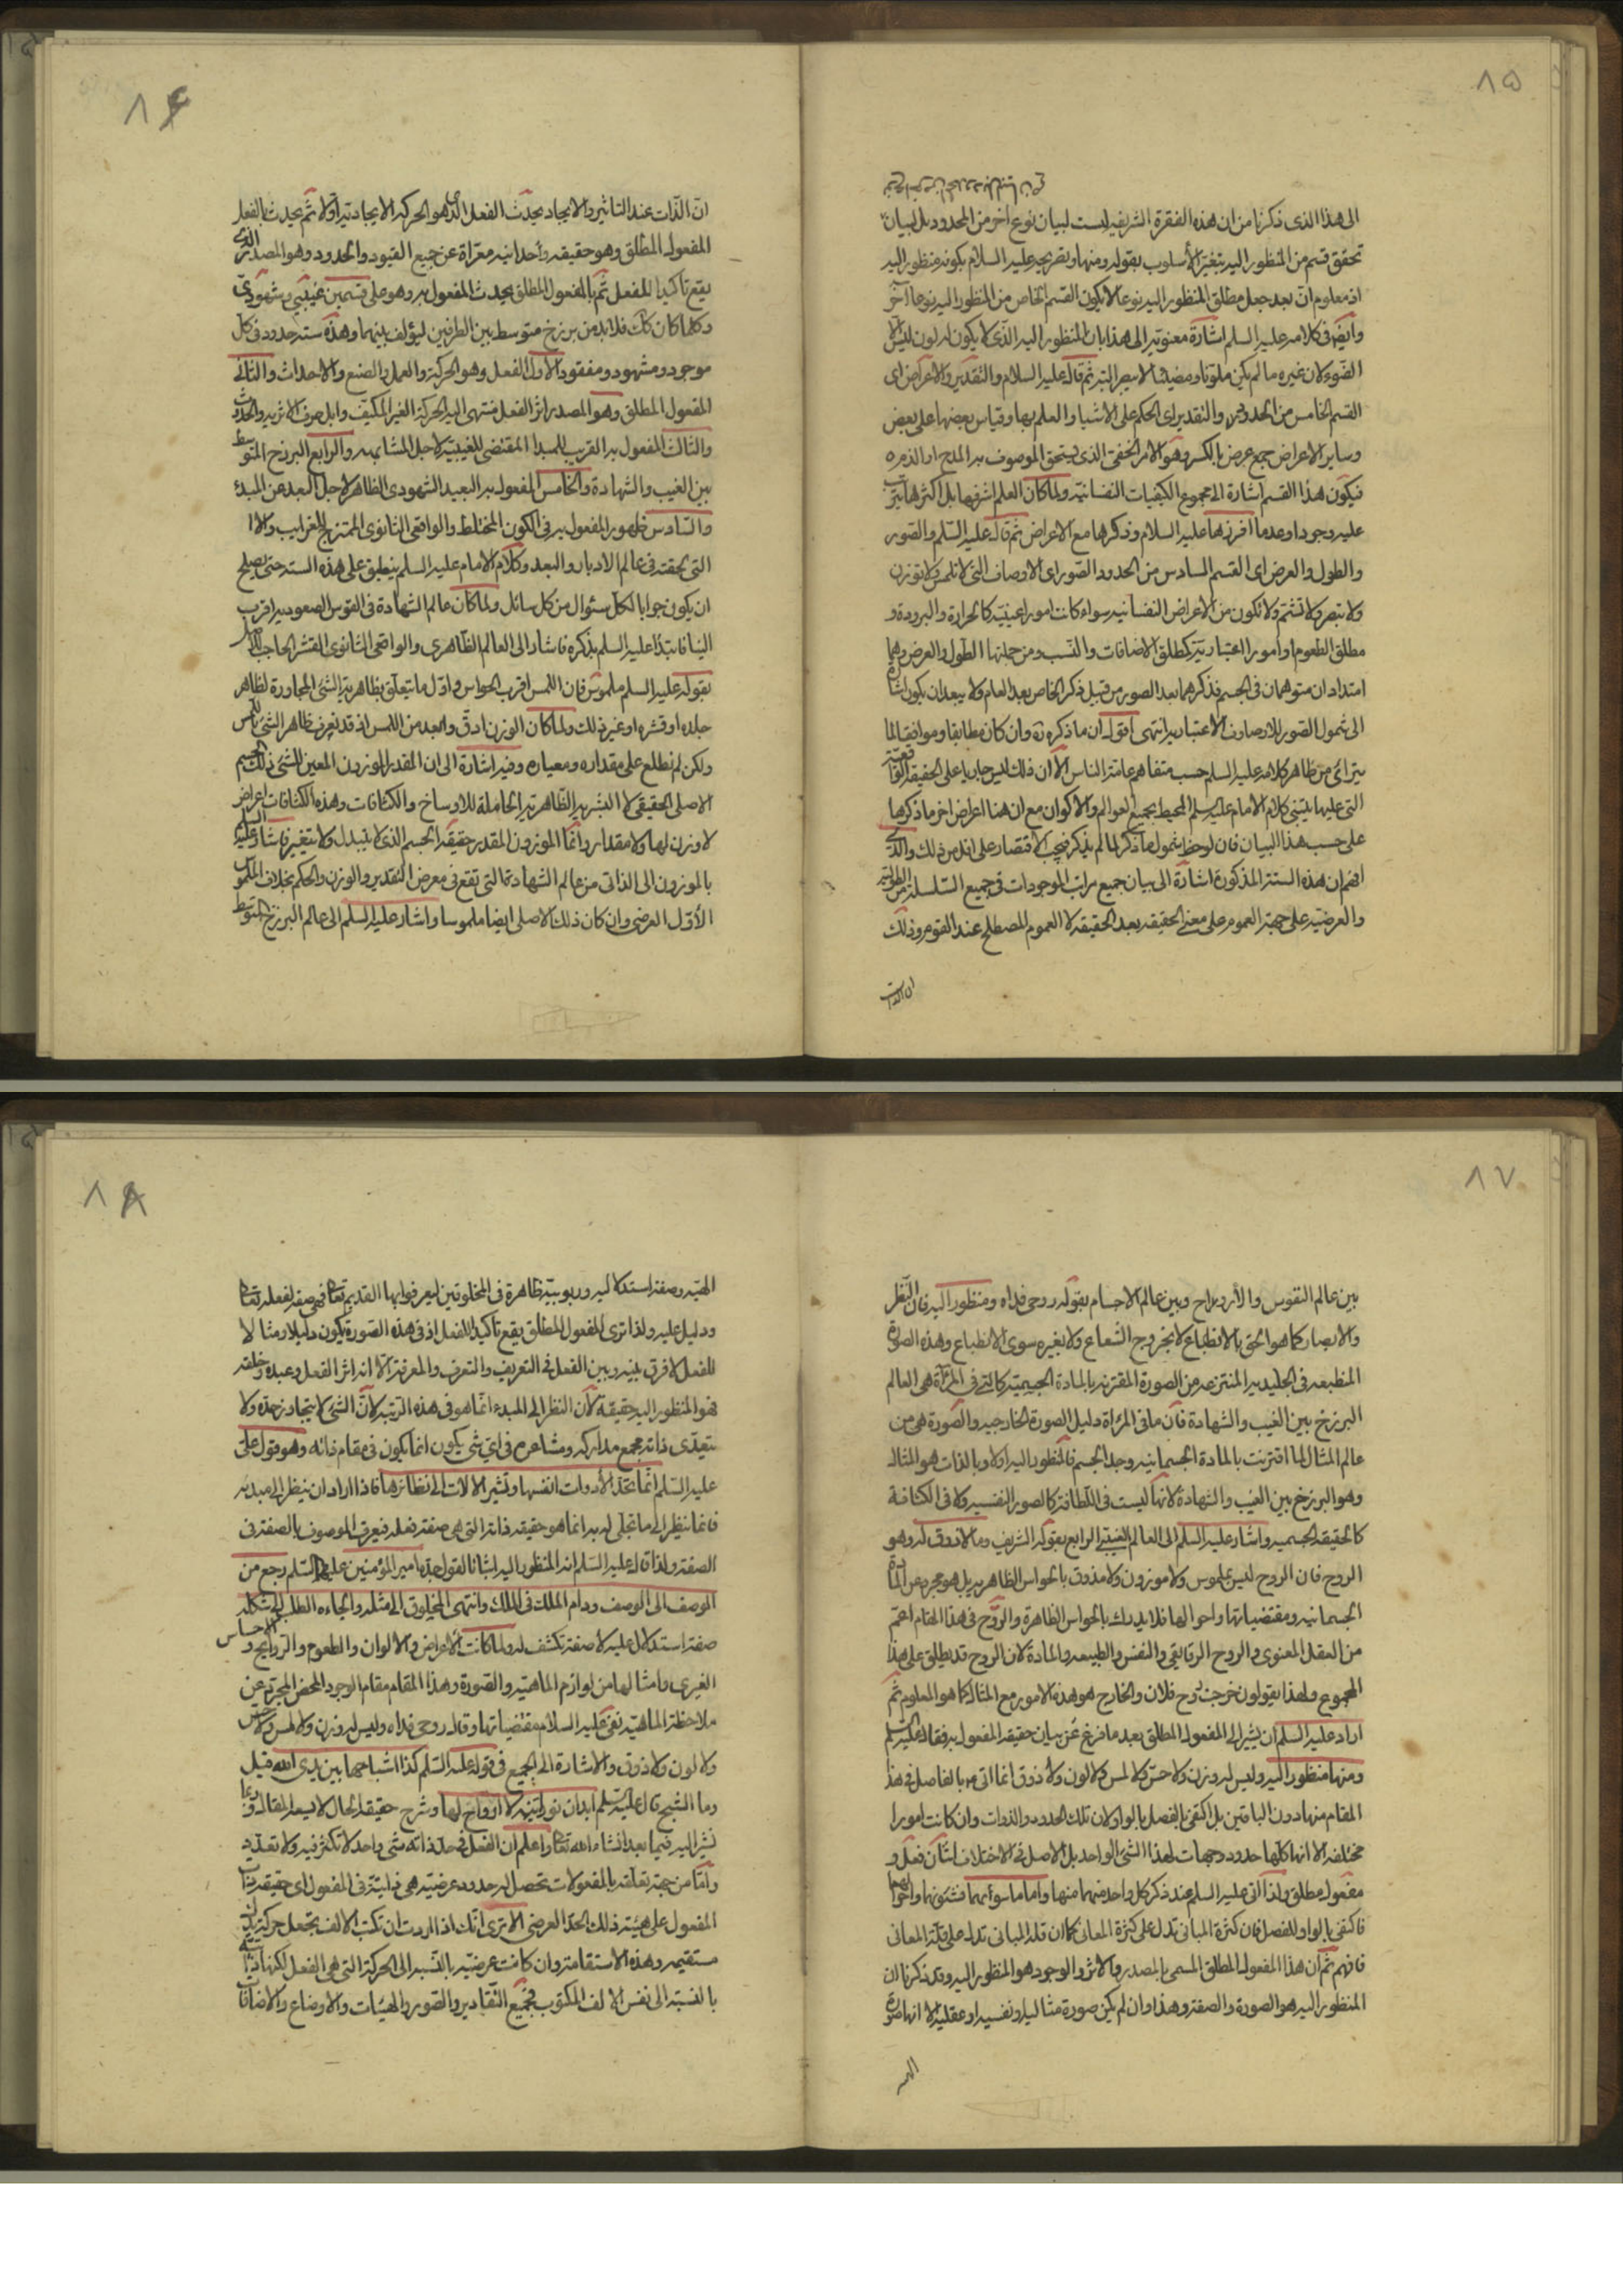 ٨٥
الى هذا الذى ذكرنا من ان هذه الفقرة الشريفه ليست لبيان نوع اخر من المحدود بل لبيان
تحقق قسم من المنظور اليه بتغير الأسلوب بقوله ومنها وتصريحه عليه السلام بكونه منظور اليه
اذ معلوم ان بعد جعل مطلق المنظور اليه نوعا لا يكون القسم الخاص من المنظور اليه نوعا آخر
وايضا فى كلامه عليه السلم اشارة معنوية الى هذا بان المنظور اليه الذى لا يكون له لون ليس الا
الضوء لان غيره ما لم يكن ملونا ومضيئا لا يبصر البتة ثم قال عليه السلام والتقدير والاعراض اى
القسم الخامس من الحدود والتقدير اى الحكم على الاشيا والعلم بها وقياس بعضها على بعض
وساير الاعراض جمع عرض بالكسر وهو الامر الخفى الذى يستحق الموصوف به المدح او الذم
فيكون هذا القسم اشارة الى مجموع الكيفيات النفسانية ولما كان العلم اشرفها بل اكثرها يترتب
عليه وجودا وعدما افرزها عليه السلام وذكرها مع الاعراض ثم قال عليه السلم والصور
والطول والعرض اى القسم السادس من الحدود الصور اى الاوصاف التى لا تلمس ولا توزن
ولا تبصر ولا تشم ولا تكون من الاعراض النفسانيه سواء كانت امورا عينية كالحرارة والبرودة و
مطلق الطعوم او امورا اعتبارية كمطلق الاضافات والنسب ومن جملتها الطول والعرض وهما
امتدادان متوهمان فى الجسم فذكرهما بعد الصور من قبيل ذكر الخاص بعد العام ولا يبعد ان يكون اشارة
الى شمول الصور للاوصاف الاعتباريه انتهى اقول ان ما ذكره ره وان كان مطابقا وموافقا لما
يترائى من ظاهر كلامه عليه السلم حسب متفاهم عامة الناس الا ان ذلك ليس جاريا على الحقيقة الواقعية
التى عليها يبتنى كلام الامام عليه السلم المحيط بجميع العوالم والاكوان مع ان هنا اعراض اخر ما ذكرها
على حسب هذا البيان فان لوحظ شمول ما ذكر لما لم يذكر فيجب الاقتصار على اقل من ذلك والذى
افهم ان هذه الستة المذكورة اشارة الى بيان جميع مراتب الموجودات فى جميع السلسلة من الطولية
والعرضية على جهة العموم على معنى الحقيقه بعد الحقيقه لا العموم المصطلح عند القوم وذلك
ان الذات
٨٦
ان الذات عند التاثير والايجاد يحدث الفعل الذى هو الحركة الايجادية اولا ثم يحدث بالفعل
المفعول المطلق وهو حقيقه واحدانيه معراة عن جميع القيود والحدود وهو المصدر الذى
يقع تاكيدا للفعل ثم بالمفعول المطلق يحدث المفعول به وهو على قسمين غيبى وشهودى
وكلما كان كك فلا بد من برزخ متوسط بين الطرفين ليؤلف بينهما وهذه ستة حدود فى كل
موجود ومشهود ومفقود الاول الفعل وهو الحركة والعمل والصنع والاحداث والثانى
المفعول المطلق وهو المصدر اثر الفعل منتهى اليه الحركة الغير المكيف وابل صرف الاثرية والحدوث
والثالث المفعول به القريب للمبدا المقتضى للغيبية لاجل المشابهه والرابع البرزخ المتوسط
بين الغيب والشهادة والخامس المفعول به البعيد الشهودى الظاهر لاجل البعد عن المبدء
والسادس ظهور المفعول به فى الكون المختلط والواقعى الثانوى الممتزج بالغرايب
التى لحقته فى عالم الادبار والبعد وكلام الامام عليه السلم ينطبق على هذه الستة حتى يصلح
ان يكون جوابا لكل سئوال من كل سائل ولما كان عالم الشهادة فى القوس الصعوديه اقرب
الينا فابتدا عليه السلم بذكره فاشار الى العالم الظاهرى والواقعى الثانوى القشر الحاجب
بقوله عليه السلم ملموس فان اللمس اقرب الحواس واول ما يتعلق بظاهرية الشئ المجاورة لظاهر
جلده او قشره او غير ذلك ولما كان الوزن ادق وابعد من اللمس اذ قد يعرف ظاهر الشئ باللمس
ولكن لم نطلع على مقداره ومعياره وفيه اشارة الى ان المقدر الموزون المعين للشئ ذلك الجسم
الاصلى الحقيقى لا البشريه الظاهرية الحاملة للاوساخ والكثافات وهذه الكثافات اعراض
لا وزن لها ولا مقدار وانما الموزون المقدر حقيقة الجسم الذى لا يتبدل ولا يتغير فاشار عليه السلم
بالموزون الى الذاتى من عالم الشهادة التى تقع فى معرض التقدير والوزن والحكم بخلاف الملموس
الأول العرضى وان كان ذلك الاصلى ايضا ملموسا واشار عليه السلم الى عالم البرزخ المتوسط
٨٧
بين عالم النفوس والأرواح وبين عالم الاجسام بقوله روحى فداه ومنظور اليه فان النظر
والابصار كما هو الحق بالانطباع لا بخروج الشعاع ولا بغيره سوى الانطباع وهذه الصورة
المنطبعه فى الجليديه المنتزعه من الصورة المقترنه بالمادة الجسمية كالتى فى المرآة هى العالم
البرزخ بين الغيب والشهادة فان ما فى المرءاة دليل الصورة الخارجيه والصورة هى من
عالم المثال لما اقترنت بالمادة الجسمانيه وجد الجسم فالمنظور اليه اولا وبالذات هو المثال
وهو البرزخ بين الغيب والشهادة لانها ليست فى اللطافة كالصور النفسيه ولا فى الكثافة
كالحقيقه الجسميه واشار عليه السلم الى العالم الغيبى الرابع بقوله الشريف وما لا ذوق له وهو
الروح فان الروح ليس بملموس ولا موزون ولا مذوق بالحواس الظاهريه بل هو مجرد عن المادة
الجسمانيه ومقتضياتها واحوالها فلا يدرك بالحواس الظاهرة والروح فى هذا المقام اعم
من العقل المعنوى والروح الرقائقى والنفس والطبيعه والمادة لان الروح قد يطلق على هذا
المجموع ولهذا يقولون خرجت روح فلان والخارج هو هذه الامور مع المثال كما هو المعلوم ثم
اراد عليه السلم ان يشير الى المفعول المطلق بعد ما فرغ عن بيان حقيقه المفعول به فقال عليه السلم
ومنها منظور اليه وليس له وزن ولا حس ولا لمس ولا لون ولا ذوق انما اتى بالفاصل فى هذا
المقام منها دون الباقين بل اكتفى الفصل بالواو لان تلك الحدود والذوات وان كانت امورا
مختلفه الا انها كلها حدود وجهات لهذا الشئ الواحد بل الاصل فى الاختلاف اثنان فعل و
مفعول مطلق ولذا اتى عليه السلم عند ذكر كل واحد منهما منها واما ما سواهما فشئونها واحوالهما
فاكتفى بالواو للفصل فان كثرة المبانى تدل على كثرة المعانى كما ان قلة المبانى تدل على قلة المعانى
فافهم ثم ان هذا المفعول المطلق المسمى بالمصدر والاثر والوجود هو المنظور اليه وقد ذكرنا ان
المنظور اليه هو الصورة والصفة وهذا وان لم يكن صورة مثاليه او نفسيه او عقلية الا انها صورة
٨٨
الهية وصفة استدلاليه وربوبية ظاهرة فى المخلوقين ليعرفوا بها القديم تعالى فهى صفة لفعله تعالى
ودليل عليه ولذا ترى المفعول المطلق يقع تاكيدا للفعل اذ فى هذه الصورة يكون دليلا ومثالا
للفعل لا فرق بينه وبين الفعل فى التعريف والتعرف والمعرفة الا انه اثر الفعل وعبده وخلقه
فهو المنظور اليه حقيقة لأن النظر الى المبدء انما هو فى هذه الرتبه لان الشئ لا يتجاوز حده ولا
يتعدى ذاته مجمع مداركه ومشاعره فى اى شئ يكون انما يكون فى مقام ذاته وهو قول على
عليه السلم انما تحد الأدوات انفسها وتشير الالات الى نظائرها فاذا اراد ان ينظر الى مبدئه
فانما ينظر الى ما تجلى له به انما هو حقيقه ذاته التى هى صفة فعله فيعرف الموصوف بالصفة فى
الصفة ولذا قال عليه السلم انه المنظور اليه اشاة لقول جده امير المؤمنين عليهما السلم رجع من
الوصف الى الوصف ودام الملك فى الملك وانتهى المخلوق الى مثله والجاءه الطلب الى شكله
صفة استدلال عليه لا صفة تكشف له ولما كانت الاعراض والالوان والطعوم والروايح و الاحساس
الغيرى وامثالها من لوازم الماهيه والصورة وهذا المقام مقام الوجود المحض المجرد عن
ملاحظة الماهيه نفى عليه السلام مقتضياتها وقال روحى فداه وليس له وزن ولا لمس ولا حس
ولا لون ولا ذوق والاشارة الى الجميع فى قوله عليه السلم كذا اشباحها بين يدى الله قيل
وما الشبح قال عليه السلم ابدان نورانية لا ارواح لها وشرح حقيقه الحال لا يسعه المقال
نشير اليه فيما بعد انشاء الله تعالى واعلم ان الفعل فى حد ذاته شئ واحد لا تكثر فيه ولا تعدد
واما من جهة تعلقه بالمفعولات تحصل له حدود عرضية هى ذاتية فى المفعول اى حقيقه
المفعول على هيئة ذلك الحد العرضى الا ترى انك اذا اردت ان تكتب الالف تجعل حركة يدك
مستقيمه وهذه الاستقامة وان كانت عرضية بالنسبة الى الحركة التى هى الفعل لكنها ذاتية
بالنسبة الى نفس الالف المكتوب فجميع التقادير والصور والهيئات والاوضاع والاضافات